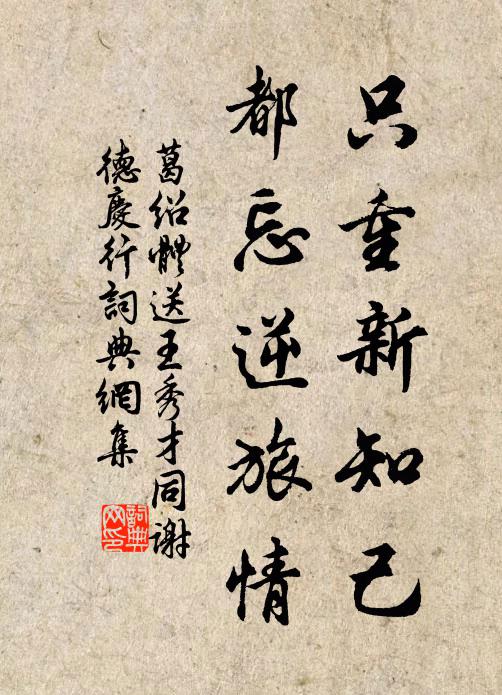 只重新知己
都忘逆旅情
葛绍體送王秀才同謝
德慶行詞典網集
詞典
网印